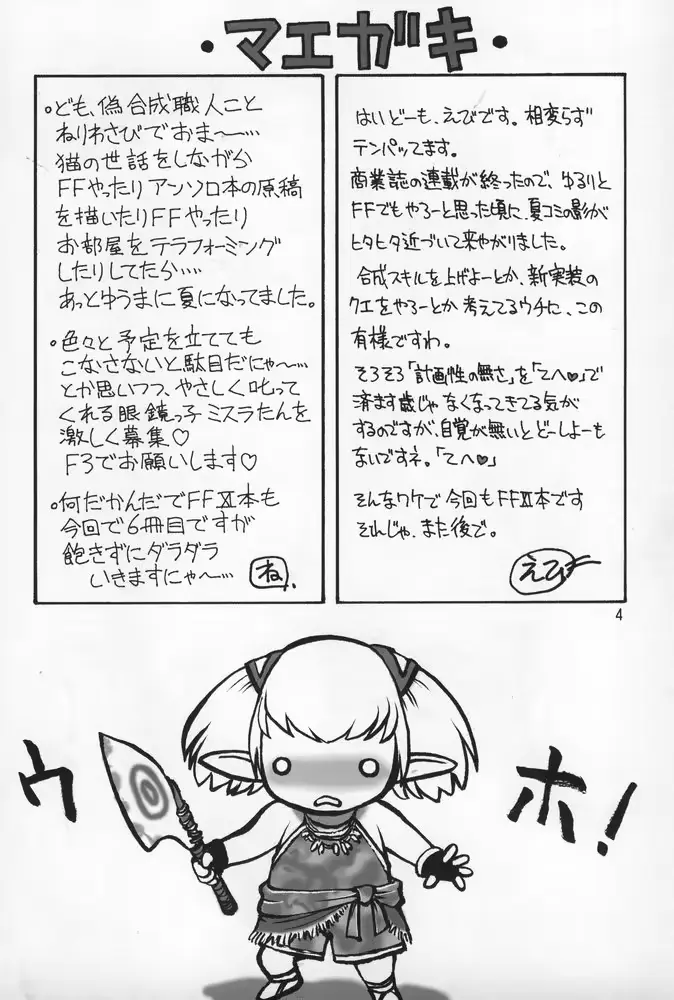 ・マエガキ・
はいどーも、えびです。相変らず
テンパッてます。
商業誌の連載が終ったので、ゆるりと
FFでもやろーと思った頃に、夏コミの影が
ヒタヒタ近づいて来やがりました。
合成スキルを上げよーとか、新実装の
クエをやろーとか考えてるウチに、この
有様ですわ。
そろそろ「計画性の無さ」を「てへ♥」で
済ます歳じゃなくなってきてる気が
するのですが、自覚が無いとどーしよーも
ないですネ。「てへ♥」
そんなワケで今回もFFⅪ本です
それじゃ、また後で。
えび
。ども、偽合成職人こと
ねりわさびでおま〜…
猫の世話をしながら
FFやったりアンソロ本の原稿
を描いたりFFやったり
お部屋をテラフォーミング
したりしてたら‥‥
あっとゆうまに夏になってました。
・色々と予定を立てても
こなさないと駄目だにゃ〜…
とか思いつつ、やさしく叱って
くれる眼鏡っ子ミスラたんを
激しく募集♡
F3でお願いします♡
・何だかんだでFFⅪ本も
今回で6冊目ですが
飽きずにダラダラ
いきますにゃ〜…
ね
4
ウ
ホ!